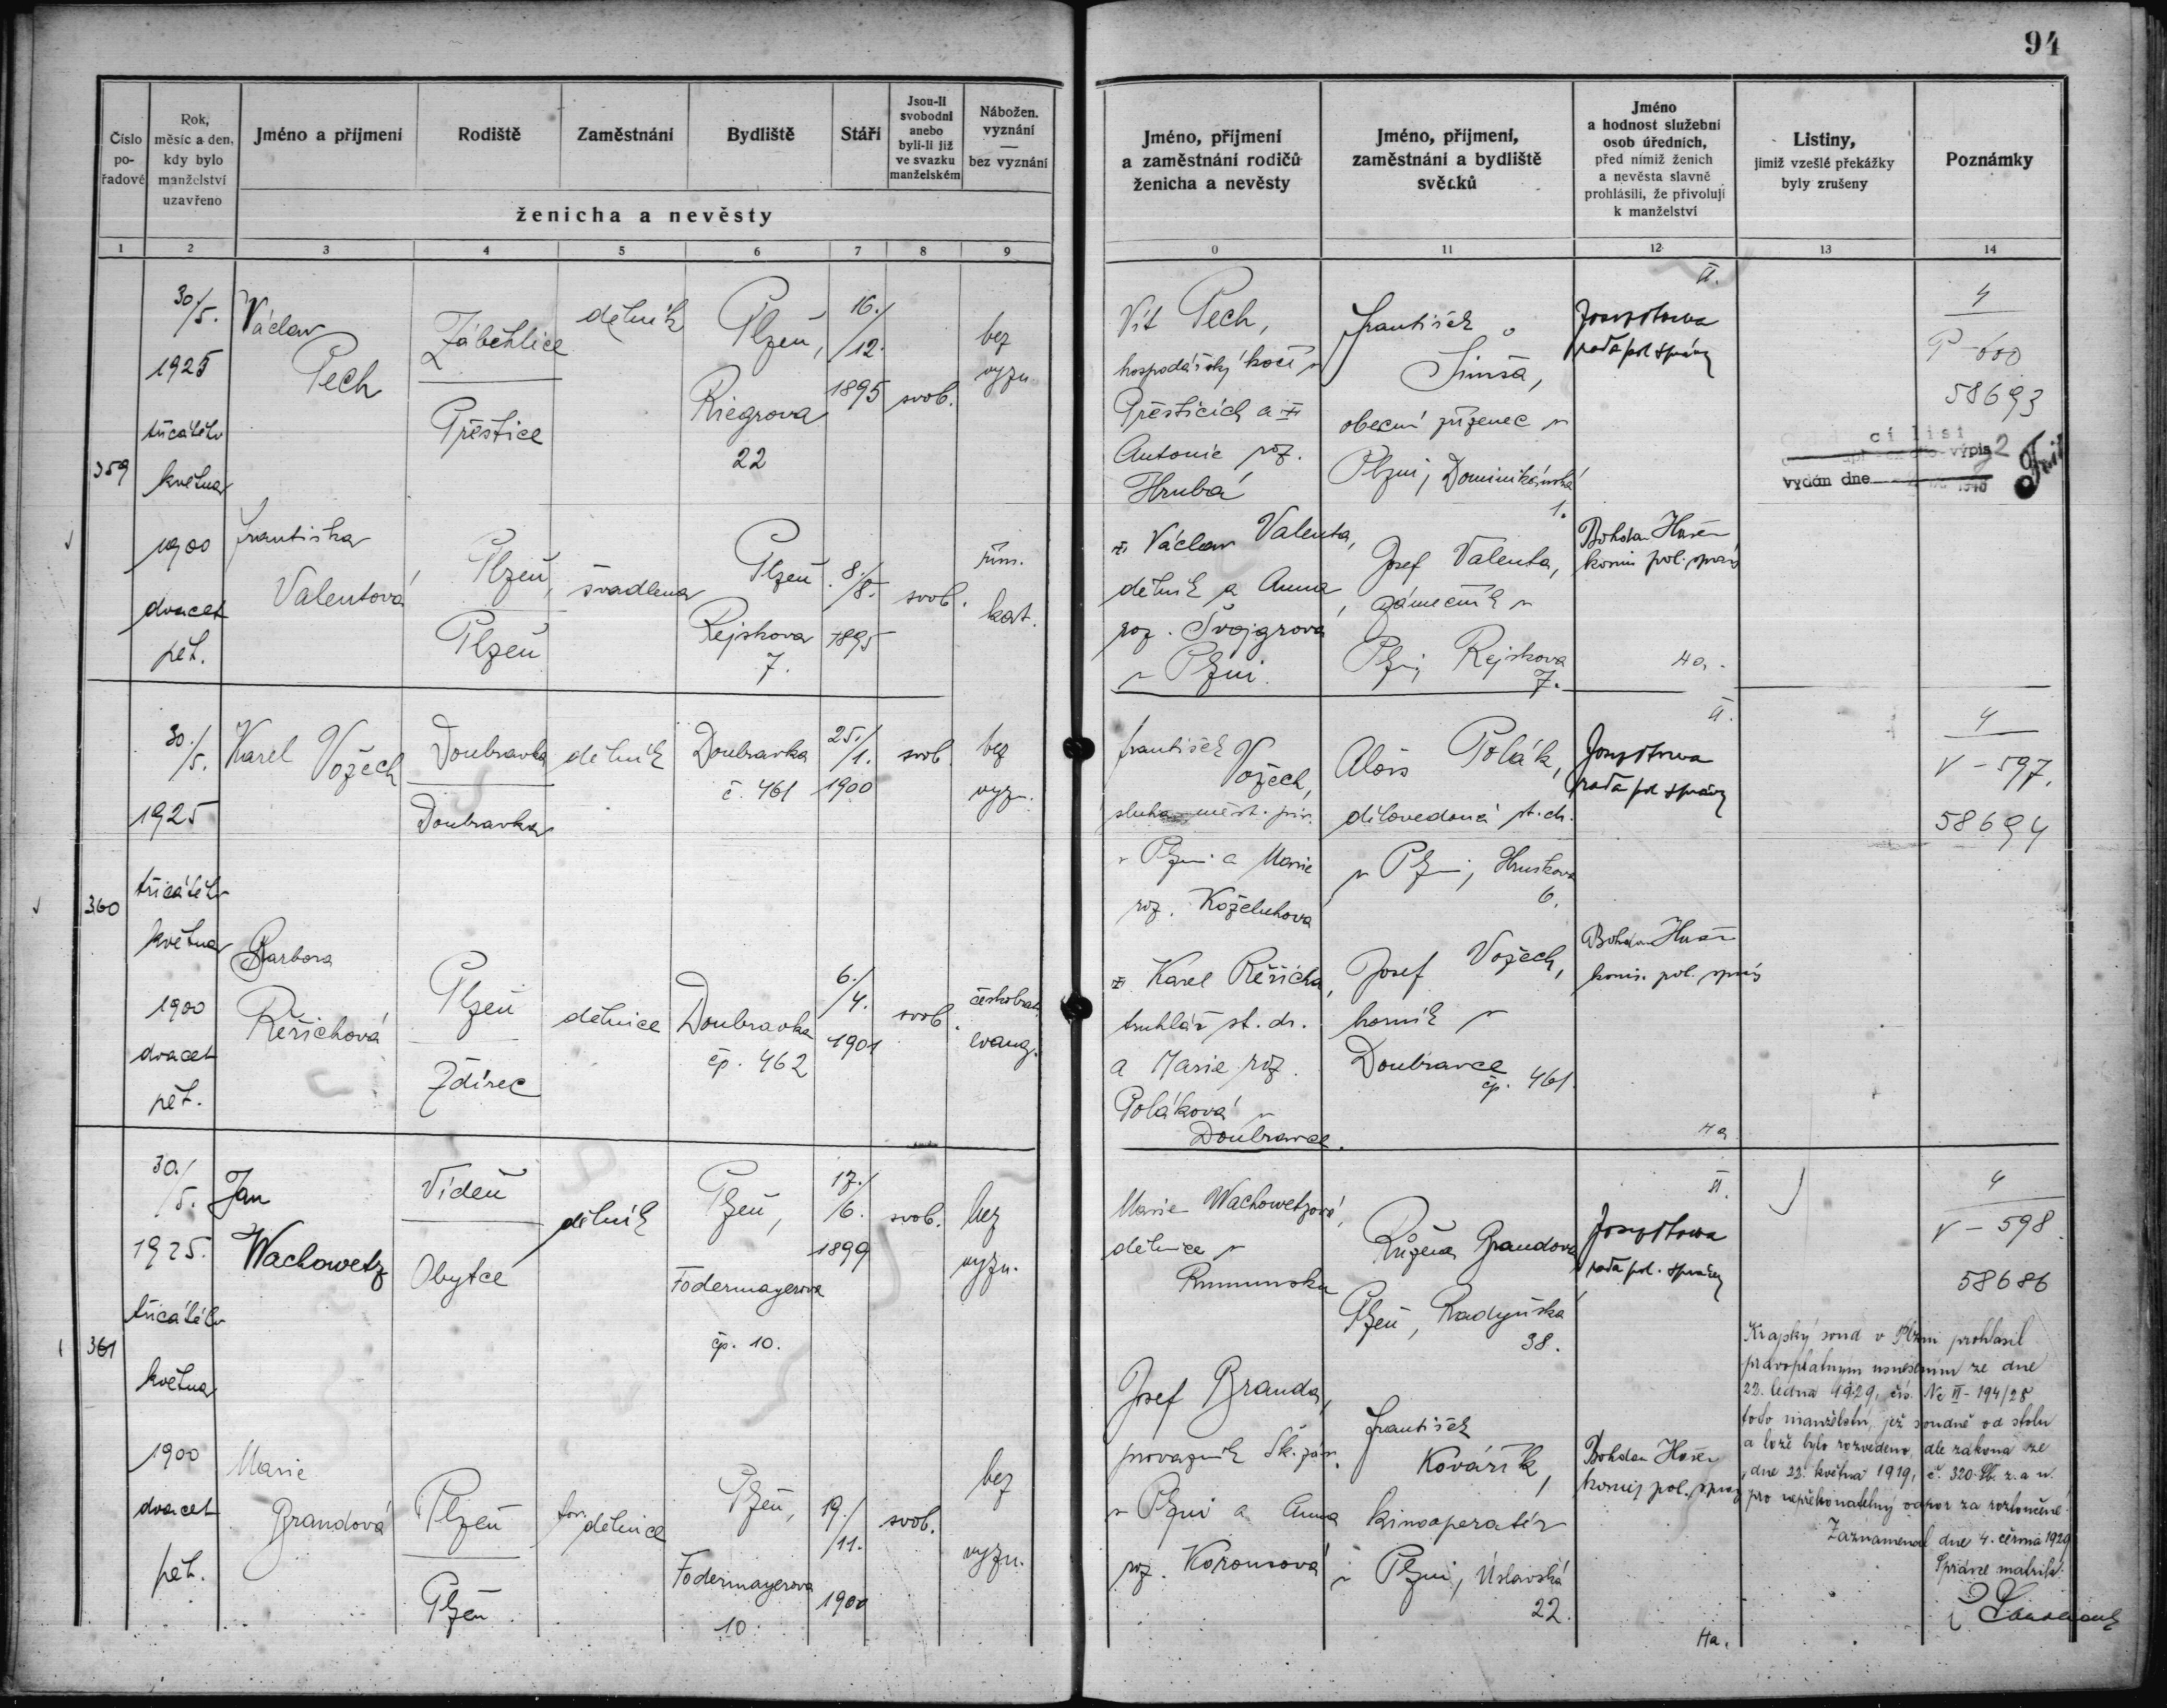 94
Číslo po-řadové
Rok, měsíc a den, kdy bylo manželství uzavřeno
Jméno a příjmení
Rodiště
Zaměstnání
Bydliště
Stáří
Jsou-li svobodni anebo byli-li již ve svazku manželském
Nábožen. vyznání — bez vyznání
ženicha a nevěsty
Jméno, příjmení a zaměstnání rodičů ženicha a nevěsty
Jméno, příjmení, zaměstnání a bydliště svědků
Jméno a hodnost služební osob úředních, před nimiž ženich a nevěsta slavně prohlásili, že přivolují k manželství
Listiny, jimiž vzešlé překážky byly zrušeny
Poznámky
1 2 3 4 5 6 7 8 9
0 11 12 13 14
359
30./5.
1925
třicátého
května
1900
dvacet
pět.
Václav
Pech
Záběhlice
Přeštice
dělník
Plzeň,
Riegrova
22
16./12.
1895
svob.
bez
vyzn.
Františka
Valentová
Plzeň,
Plzeň
švadlena
Plzeň
Rejskova
7.
8./8.
1895
svob.
řím.
kat.
Vít Pech,
hospodářský kočí v
Přešticích a
Antonie roz.
Hrubá
František
Šimsa,
obecní zřízenec v
Plzni, Dominikánská
1.
II.
rada pol. správy
4
P-600
58693
vydán dne
Václav Valenta,
dělník a Anna
roz. Švajgrová
v Plzni.
Josef Valenta,
zámečník v
Plzni, Rejskova
7.
Bohdan
komis. pol. správy
Ha.
360
30./5.
1925
třicátého
května
1900
dvacet
pět.
Karel Vožech
Doubravka
Doubravka
dělník
Doubravka
č. 461
25./1.
1900
svob.
bez
vyzn.
Barbora
Řeřichová
Plzeň
Ždírec
dělnice
Doubravka
čp. 462
6./4.
1901
svob.
českobrat.
evang.
František
Vožech,
sluha měst. piv.
v Plzni a Marie
roz. Koželuhova
Alois Polák,
dílovedoucí st. dr.
v Plzni, Hruškova
6.
II.
rada pol. správy
4
V-597.
58694
Karel Řeřicha,
truhlář st. dr.
a Marie roz.
Poláková v
Doubravce.
Josef Vožech,
horník v
Doubravce
čp. 461.
Bohdan
komis. pol. správy
Ha
361
30./5.
1925.
třicátého
května
1900
dvacet
pět.
Jan
Wachowetz
Vídeň
Obytce
dělník
Plzeň,
Fodermayerova
čp. 10.
17./6.
1899
svob.
bez
vyzn.
Marie
Brandová
Plzeň
Plzeň
tov. dělnice
Plzeň,
Fodermayerova
10.
19./11.
1900
svob.
bez
vyzn.
Marie Wachowetzová,
dělnice v
Rumunsku
Růžena Brandová
Plzeň, Radyňská
38.
II.
rada pol. správy
4
V-598.
58686
Josef Branda,
provazník Šk. záv.
v Plzni a Anna
roz. Korousová
František
Kovářík,
kinooperatér
v Plzni, Úslavská
22.
Bohdan
komis. pol. správy
Ha.
Krajský soud v Plzni prohlásil
pravoplatným usnesením ze dne
22. ledna 1929, čís. Nc II-194/28
toto manželství, jež soudně od stolu
a lože bylo rozvedeno, dle zákona ze
dne 22. května 1919, č. 320 Sb. z. a n.
pro nepřekonatelný odpor za rozloučené.
Zaznamenal dne 4. června 1929
Správce matriky: